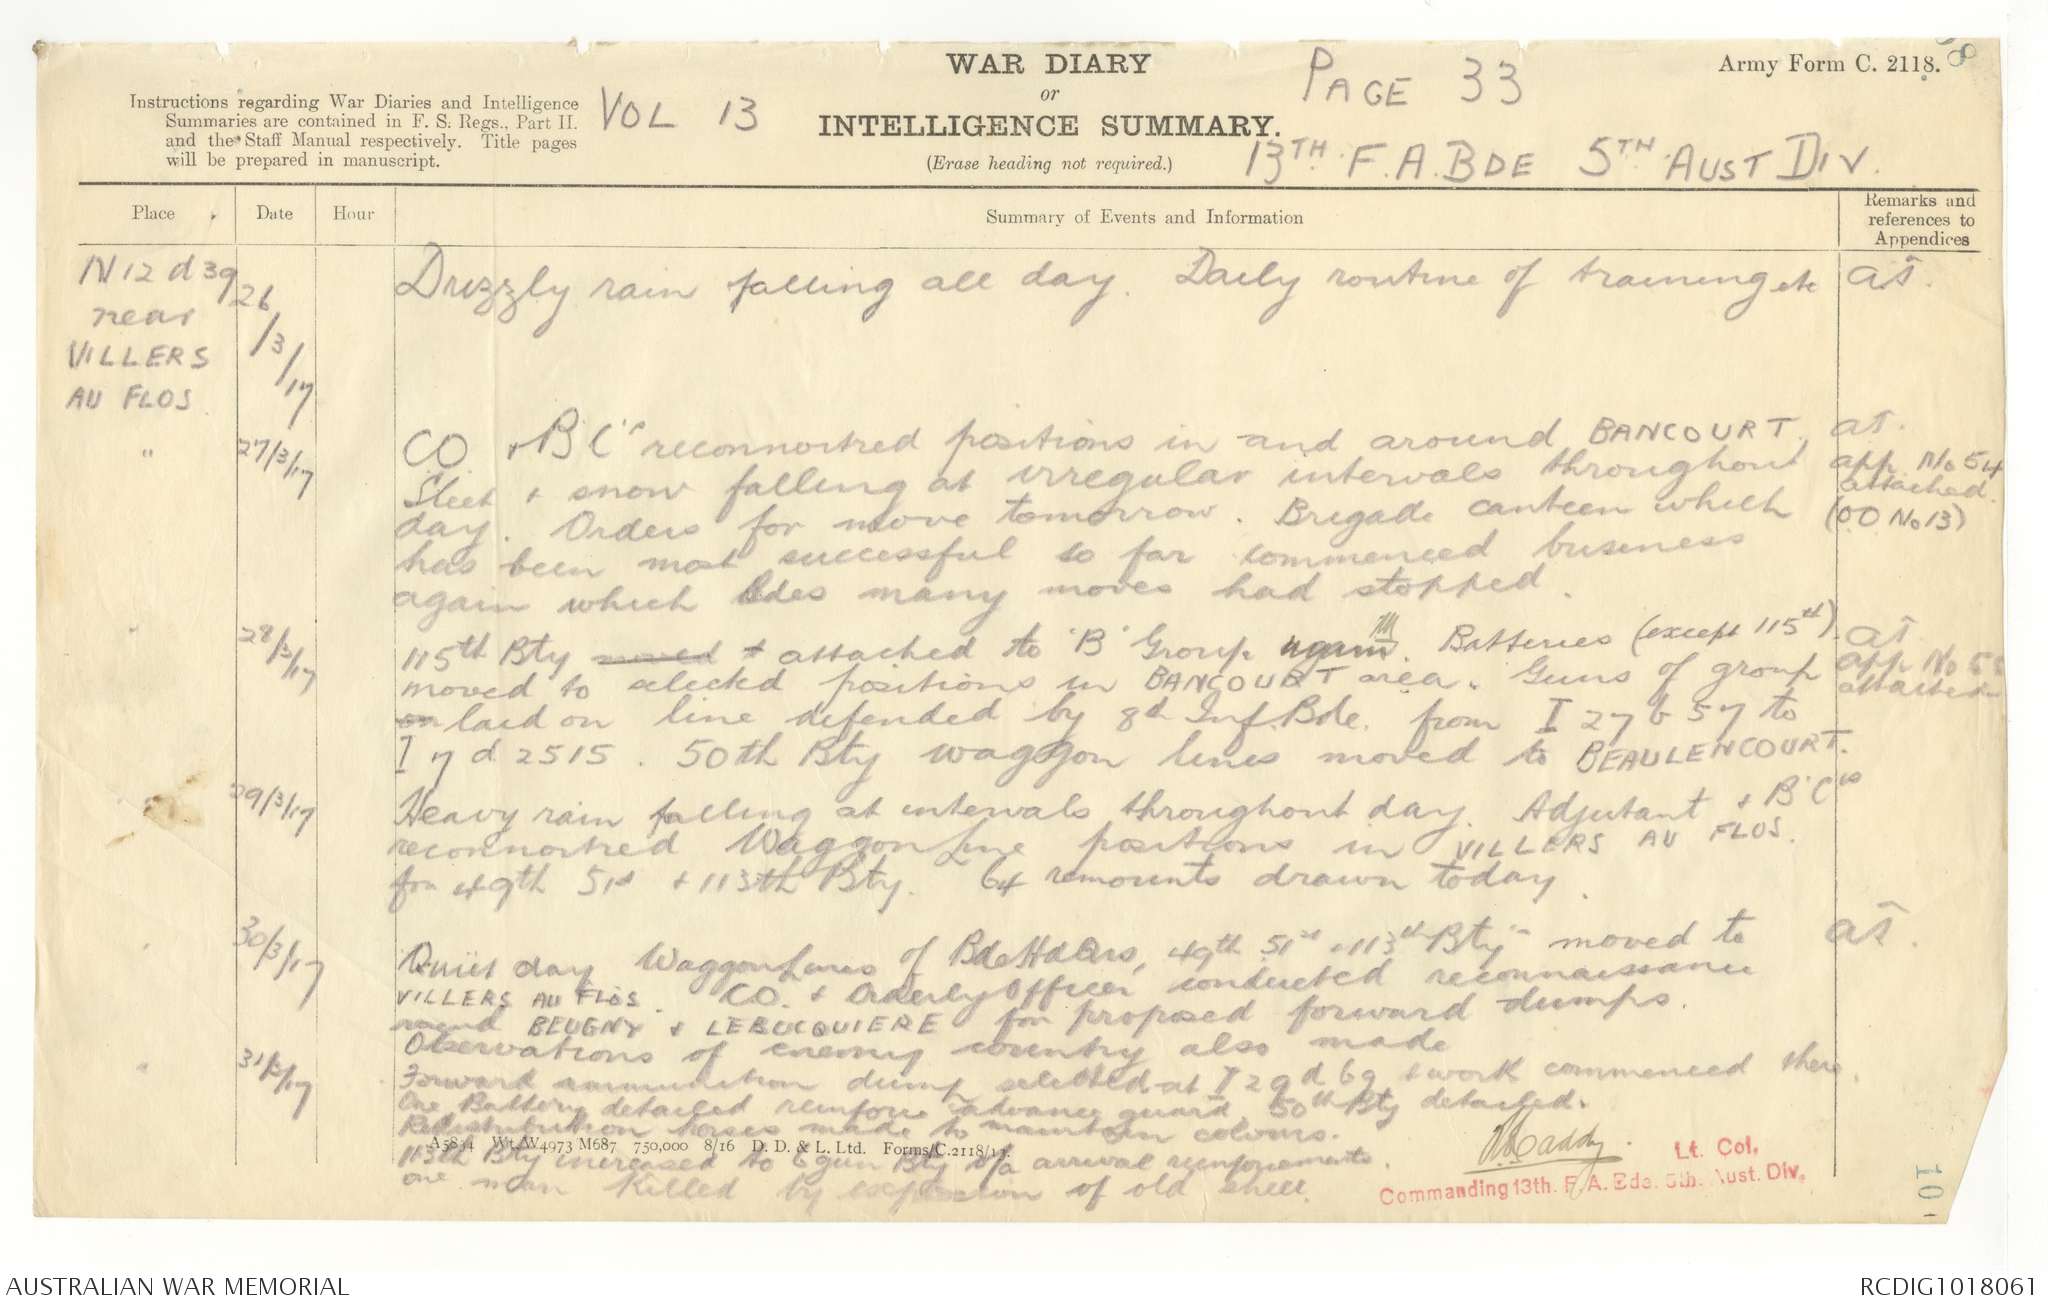 WAR DIARY
or
INTELLIGENCE SUMMARY.
(Erase heading not required.)
Army Form C. 2118.
Instructions regarding War Diaries and Intelligence
Summaries are contained in F. S. Regs., Part II.
and the Staff Manual respectively. Title pages
will be prepared in manuscript.
VOL 13
PAGE 33
13TH F.A. BDE 5TH AUST DIV.
Place Date Hour Summary of Events and Information Remarks and references to Appendices
N 12 d 39
near
VILLERS
AU FLOS
26/3/17
Drizzly rain falling all day. Daily routine of training etc
" 27/3/17
CO + BC's reconnoitred positions in and around BANCOURT.
Sleet + snow falling at irregular intervals throughout
day. Orders for move tomorrow. Brigade canteen which
has been most successful so far commenced business
again which Bdes many moves had stopped.
app No 54
attached.
(OO No 13)
" 28/3/17
115th Bty moved + attached to 'B' Group again. Batteries (except 115th)
moved to selected positions in BANCOURT area. Guns of group
laid on line defended by 8th Inf. Bde. from I 27 b 57 to
I 7 d 2515. 50th Bty waggon lines moved to BEAULENCOURT.
app No 55
attached
29/3/17
Heavy rain falling at intervals throughout day. Adjutant + BC's
reconnoitred Waggon Line positions in VILLERS AU FLOS.
for 49th 51st + 113th Bty. 64 remounts drawn today.
" 30/3/17
Quiet day Waggon Lines of Bde HdQrs, 49th 51st + 113th Btys moved to
VILLERS AU FLOS. CO. + Orderly Officer conducted reconnaissance
round BEUGNY + LEBUCQUIERE for proposed forward dumps.
Observations of enemy country also made
" 31/3/17
Forward ammunition dump selected at I 29 d 69 + work commenced there.
One Battery detailed reinforce advance guard, 50th Bty detailed.
Redistribution horses made to maintain colours.
113th Bty increased to 6 gun Bty o/a arrival reinforcements.
one man killed by explosion of old shell.
A5834 Wt. W4973 M687 750,000 8/16 D. D. & L. Ltd. Forms/C.2118/13.
Lt. Col.
Commanding 13th. F.A. Bde. 5th. Aust. Div.
AUSTRALIAN WAR MEMORIAL
RCDIG1018061